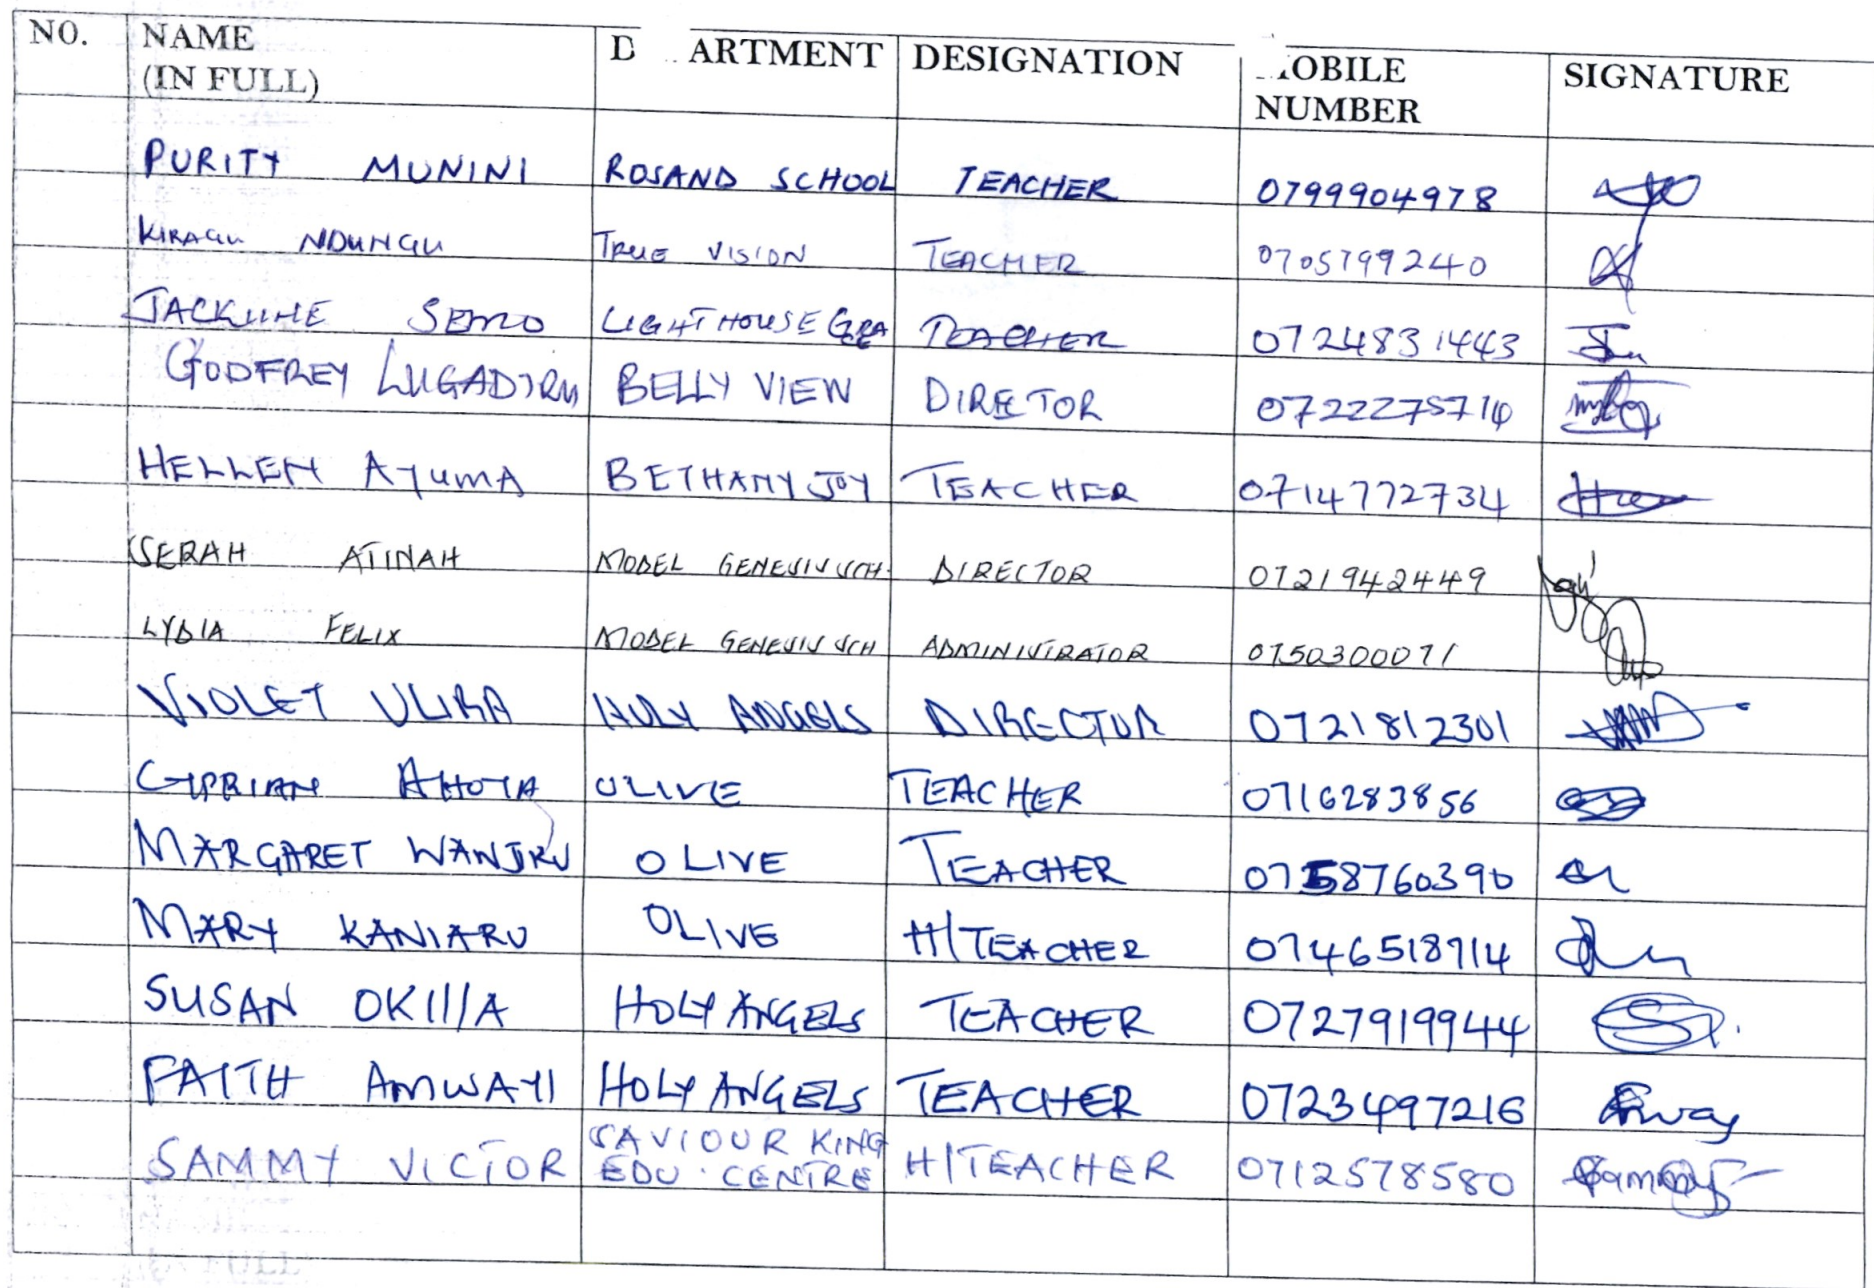 NO. NAME D ARTMENT DESIGNATION OBILE SIGNATURE
(IN FULL) NUMBER
PURITY MUNINI ROSAND SCHOOL TEACHER 0799904978
KIRAGU NDUNGU TRUE VISION TEACHER 0705799240
JACKLINE SEMO LIGHTHOUSE GRA TEACHER 0724831443
GODFREY LUGADIRU BELLY VIEW DIRECTOR 0722275710
HELLEN AYUMA BETHANY JOY TEACHER 0714772734
SERAH ATINAH MODEL GENESIS SCH. DIRECTOR 0721942449
LYDIA FELIX MODEL GENESIS SCH ADMINISTRATOR 0750300071
VIOLET ULIRA HOLY ANGELS DIRECTOR 0721812301
CIPRIAN AHOYA OLIVE TEACHER 0716283856
MARGARET WANJRU OLIVE TEACHER 0758760390
MARY KANIARU OLIVE H/TEACHER 0746518914
SUSAN OKIIIA HOLY ANGELS TEACHER 0727919944
FAITH AMWAYI HOLY ANGELS TEACHER 0723497216
SAMMY VICTOR SAVIOUR KING H/TEACHER 0712578580
EDU. CENTRE